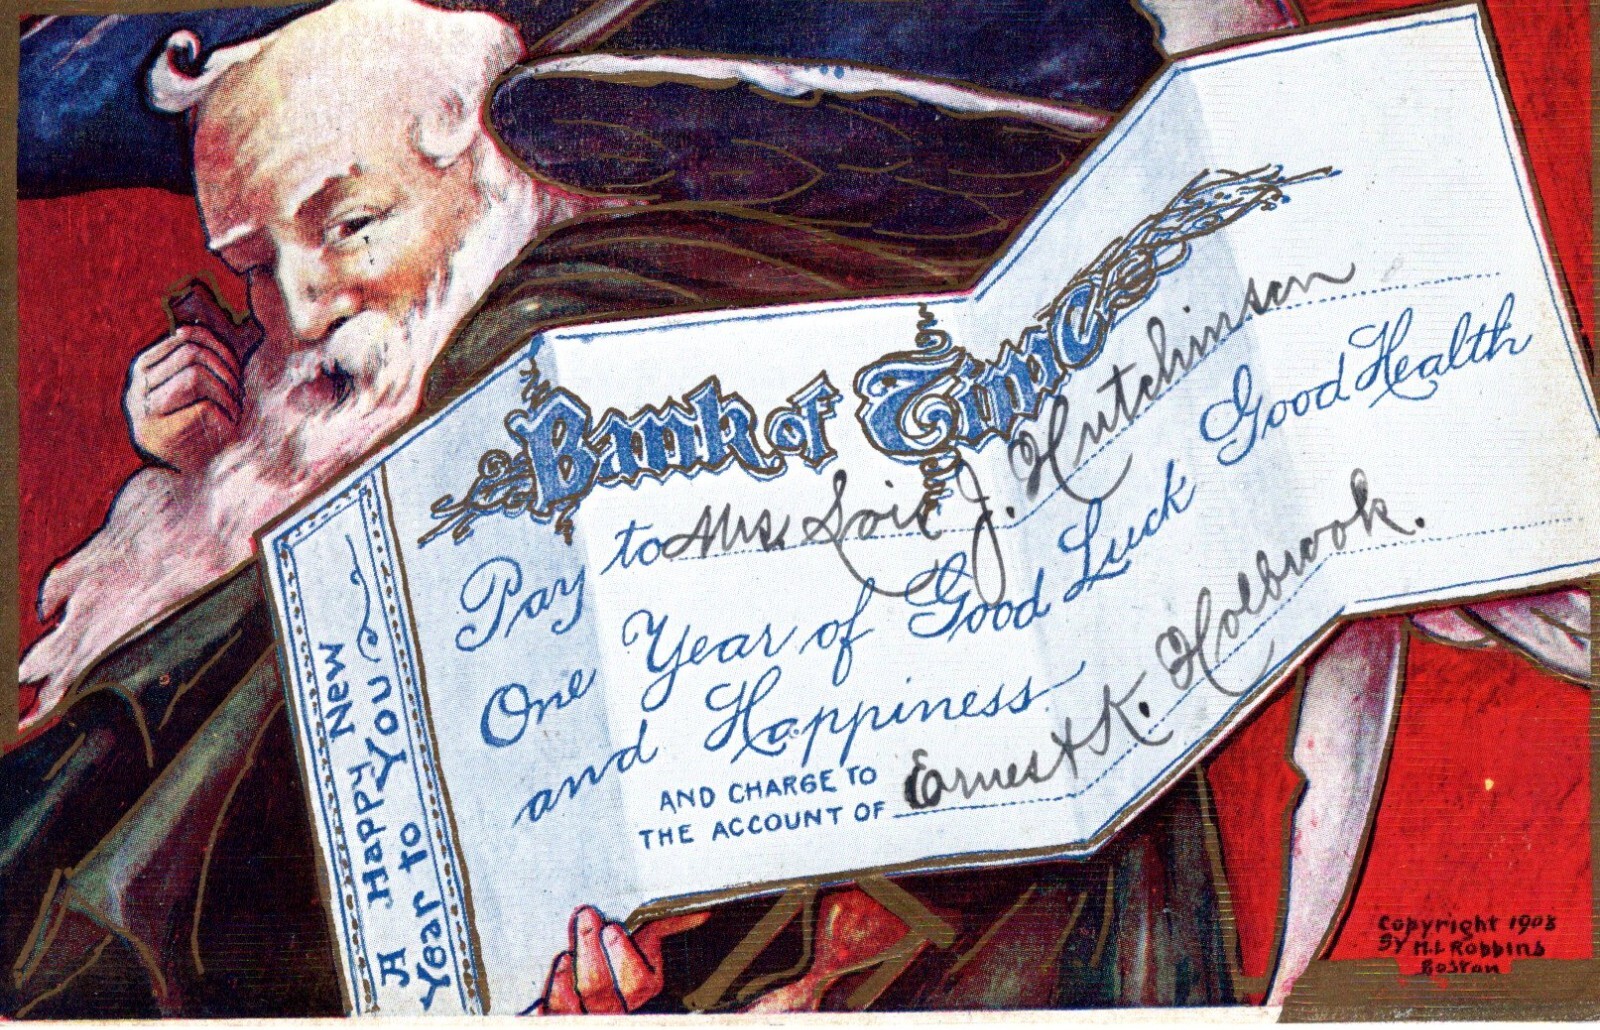 Bank of Time
Pay to Mrs. Lois J. Hutchinson
One Year of Good Luck Good Health
and Happiness
AND CHARGE TO
THE ACCOUNT OF Ernest K. Holbrook.
A Happy New
Year to You
Copyright 1908
By H.L Robbins
Boston